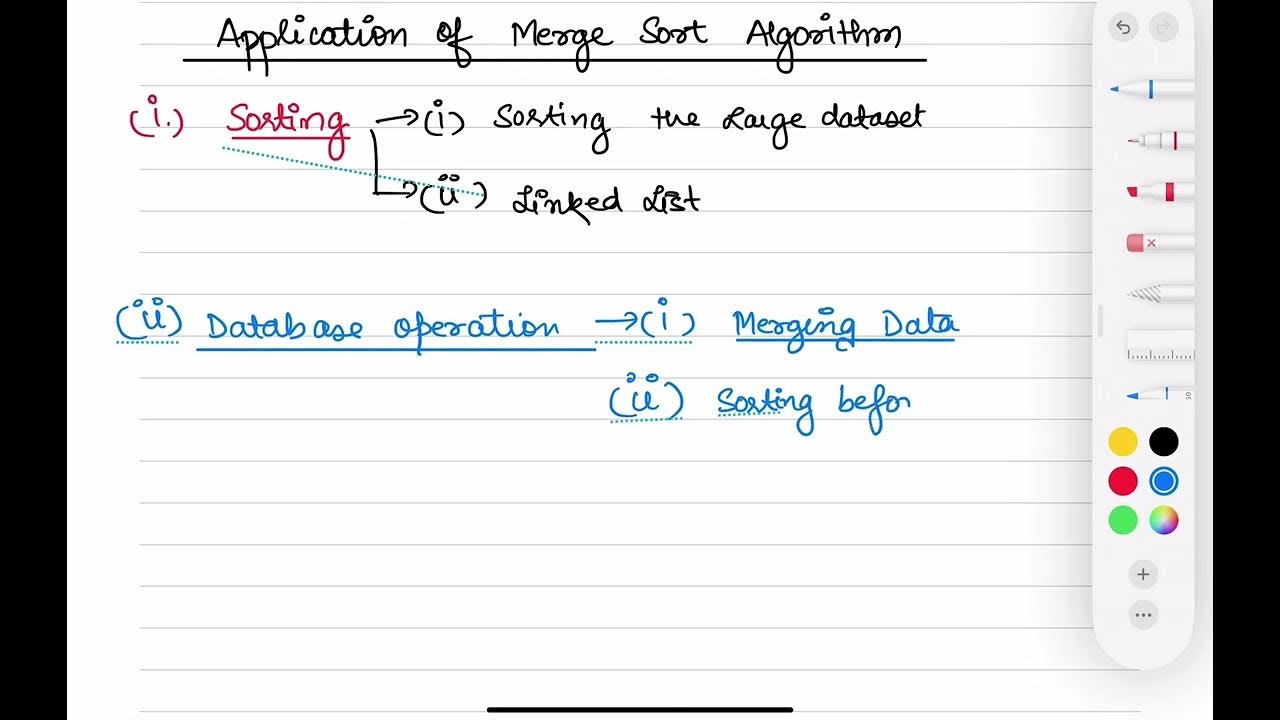 Application of Merge Sort Algorithm
(i.) Sorting → (i) Sorting the Large dataset
→ (ii) Linked List
(ii) Database operation → (i) Merging Data
(ii) Sorting befor
50